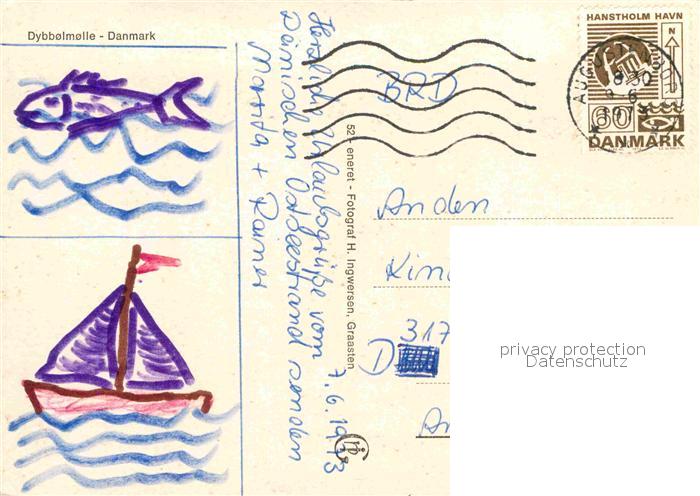 Dybbølmølle - Danmark
Herzliche Urlaubsgrüße vom 7.6.1973
Dänischen Ostseestrand senden
Marita + Rainer
52 - eneret - Fotograf H. Ingwersen, Graasten
BRD
HANSTHOLM HAVN
N
60
DANMARK
8.30
An den
Kin
D 317
An
privacy protection
Datenschutz